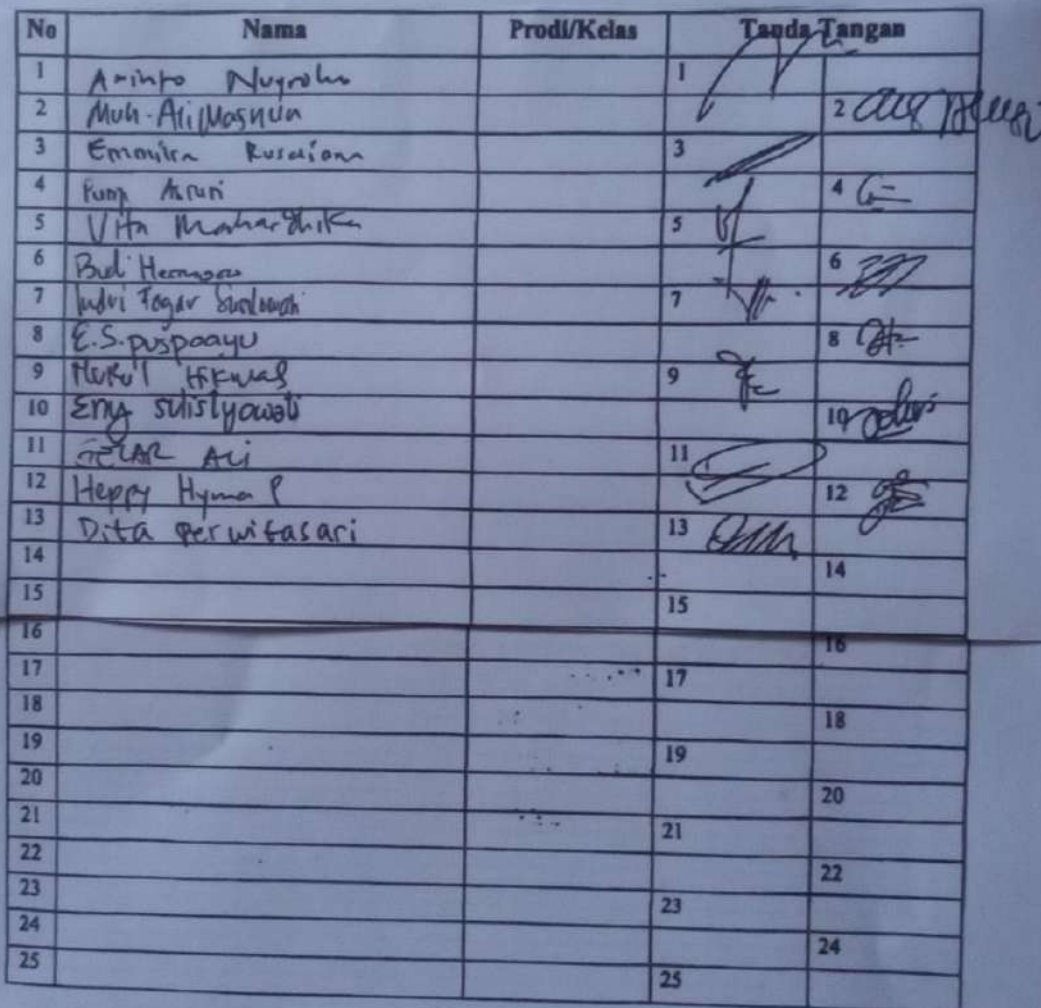 No Nama Prodi/Kelas Tanda Tangan
1 Arinto Nugroho 1
2 Muh. Ali Masnun 2
3 Emmilia Rusdiana 3
4 Asruri 4
5 Vita Mahardhika 5
6 Budi Hermono 6
7 Indri Fogar Susilowati 7
8 E.S. puspoayu 8
9 Nurul Hikmah 9
10 Eny sulistyowati 10
11 GELAR ALI 11
12 Heppy Hyma P 12
13 Dita perwitasari 13
14 14
15 15
16 16
17 17
18 18
19 19
20 20
21 21
22 22
23 23
24 24
25 25